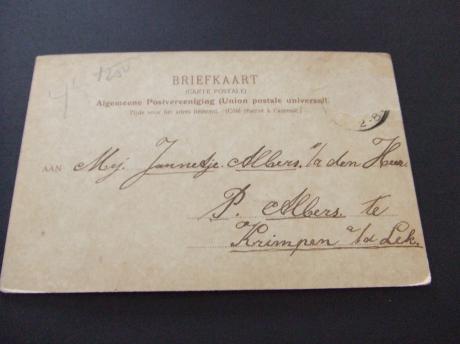 BRIEFKAART
(CARTE POSTALE)
Algemeene Postvereeniging (Union postale universell.
Zijde voor het adres bestemd. (Côté réservé à l'adresse.)
AAN Mej. Jannetje Albers. a/d den Heer
P. Albers te
Krimpen a/d Lek.